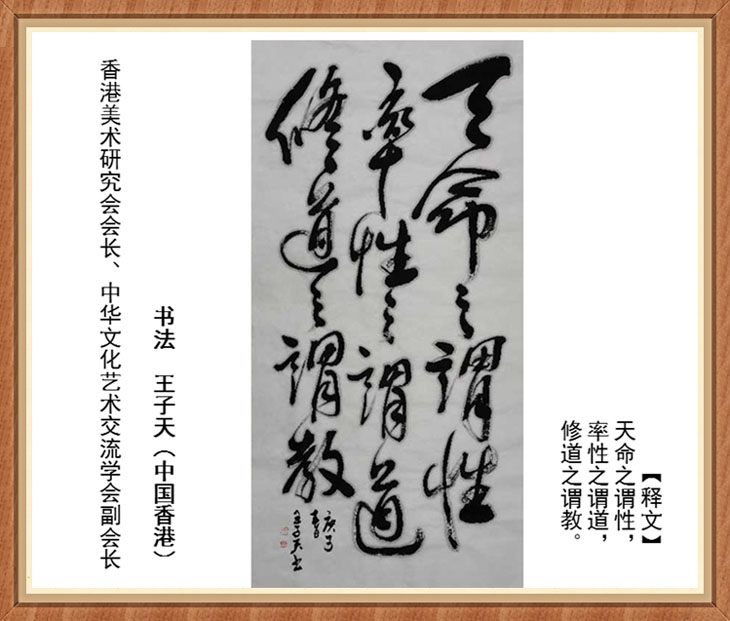 【释文】
天命之谓性，
率性之谓道，
修道之谓教。
天命之謂性
率性之謂道
修道之謂教
庚子
春
王子天书
书法 王子天（中国香港）
香港美术研究会会长、中华文化艺术交流学会副会长